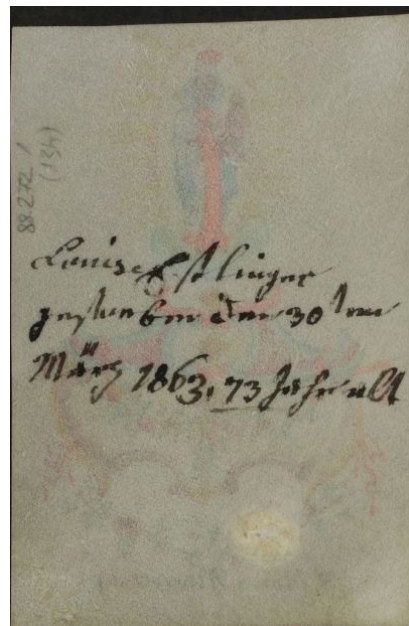 88.272 /
(134)
Louise Estlinger
gestorben den 30ten
März 1863. 73 Jahr alt